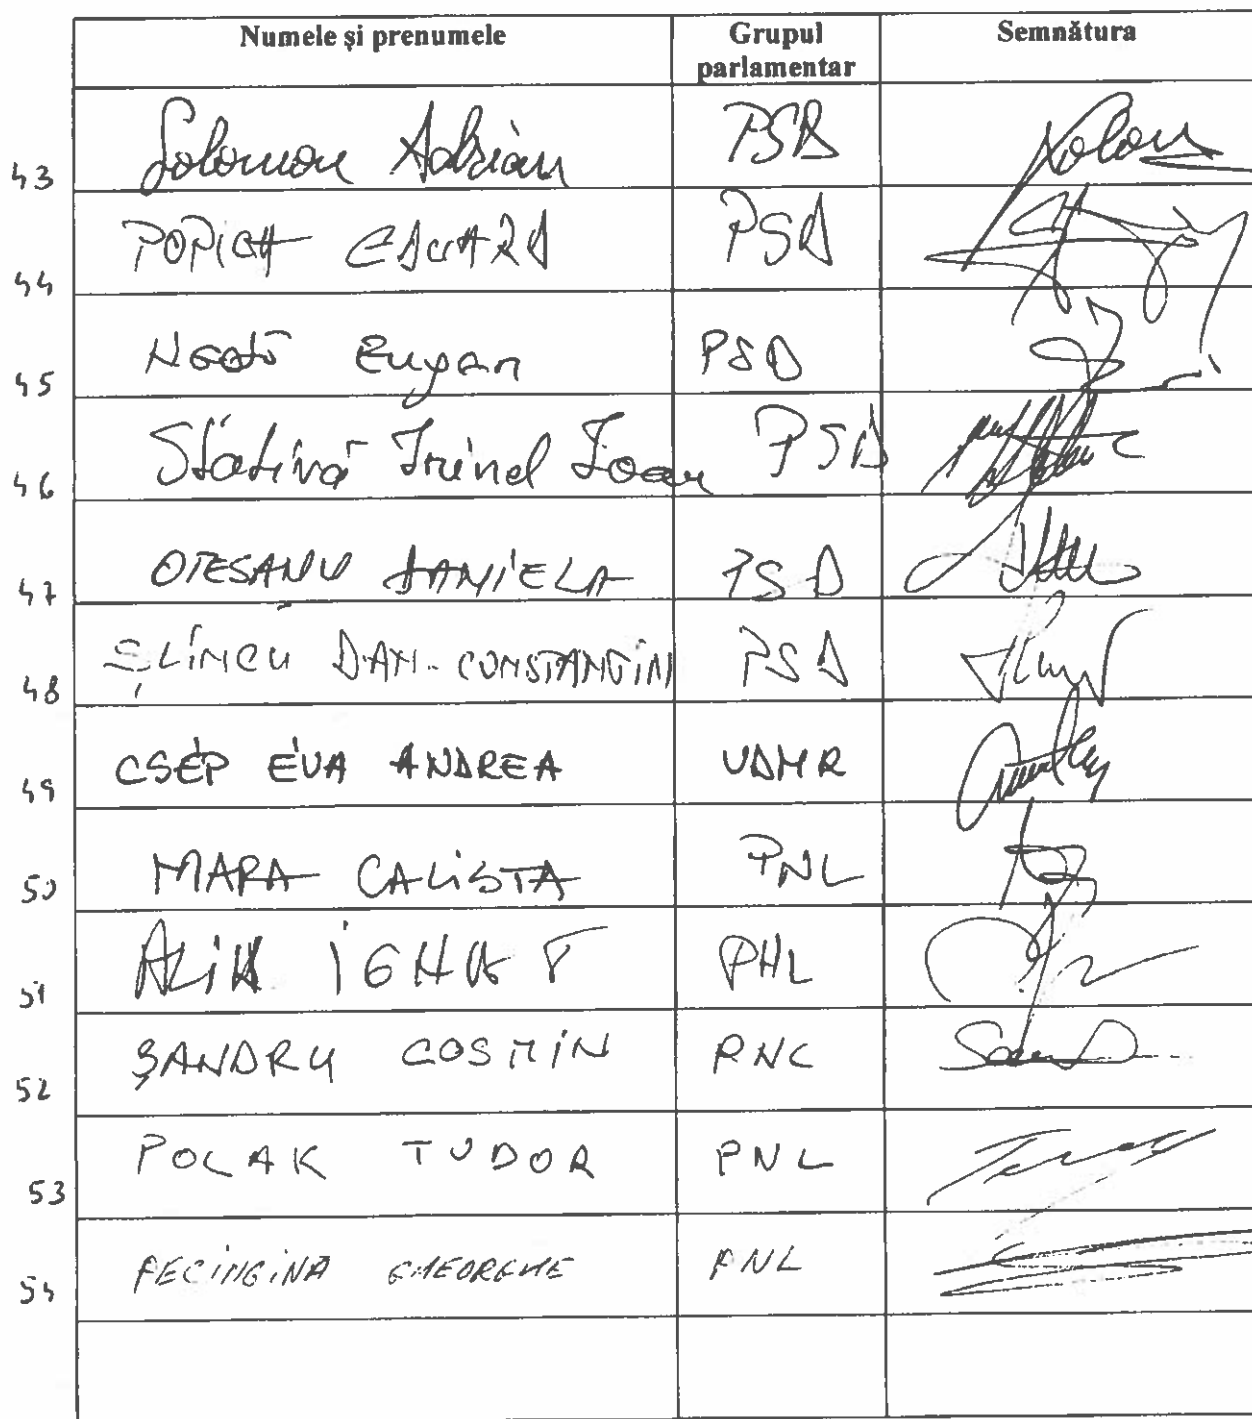 Numele și prenumele Grupul parlamentar Semnătura
43 Solomon Adrian PSD
44 POPICA EDUARD PSD
45 Neață Eugen PSD
46 Stativă Irinel Ioan PSD
47 OTESANU DANIELA PSD
48 ȘLINCU DAN-CONSTANTIN PSD
49 CSÉP ÉVA ANDREA UDMR
50 MARA CALISTA PNL
51 ALIN IGNAT PNL
52 ȘANDRU COSMIN PNL
53 POLAK TUDOR PNL
54 PECINGINA GHEORGHE PNL